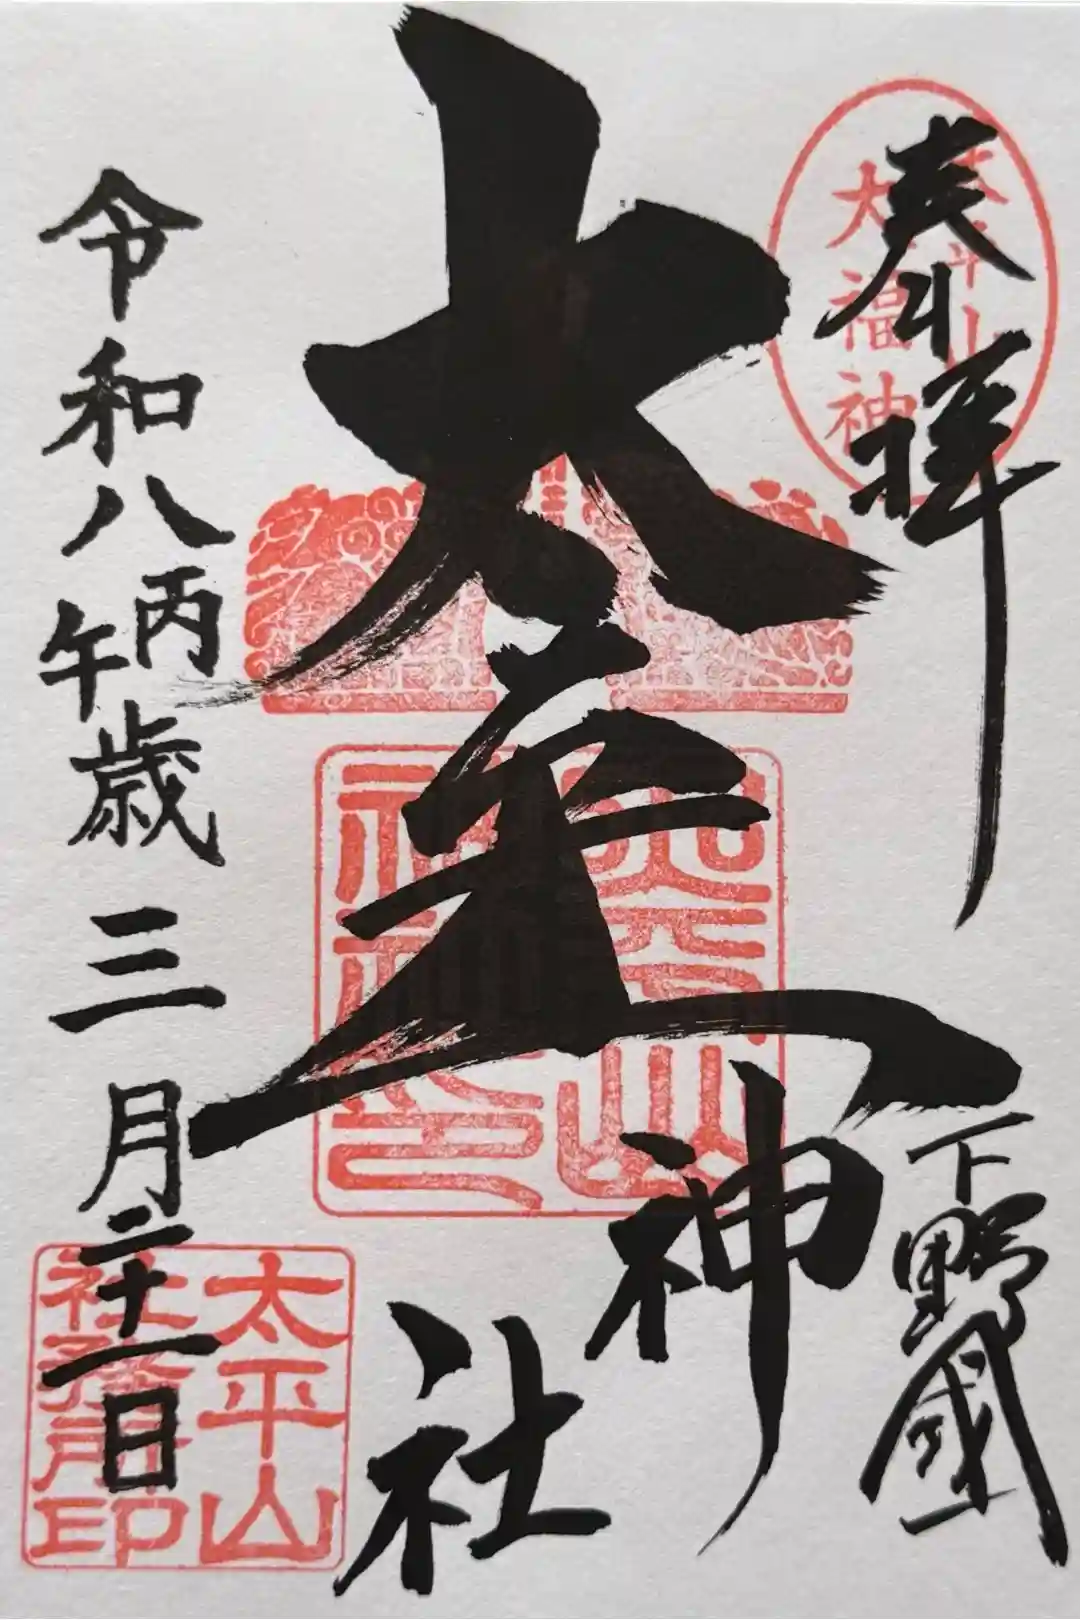 奉拝
太平山
大福神
下野國
太平山神社
太平山
神社印
令和八丙午歳三月二十一日
太平山
社務所印